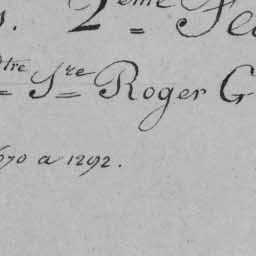 s. 2ème Fe
tre Sre Roger G
670 a 1292.